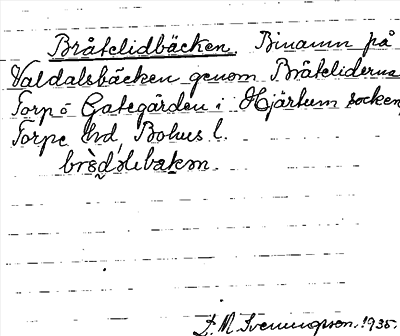 Bråtelidbäcken. Binamn på
Valdalsbäcken genom Bråteliderna
Torp o Gategården i Hjärtum socken,
Torpe hd, Bohus l.
F. M. Svenungsson. 1935.